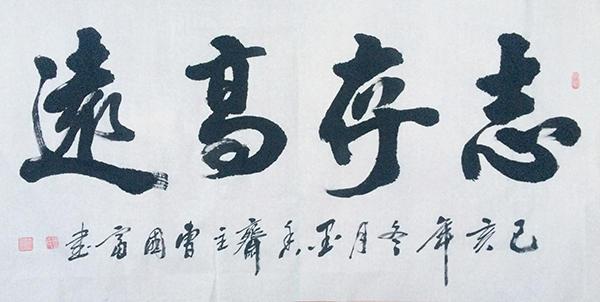 志存高遠
己亥年冬月墨香齋主曹國富書